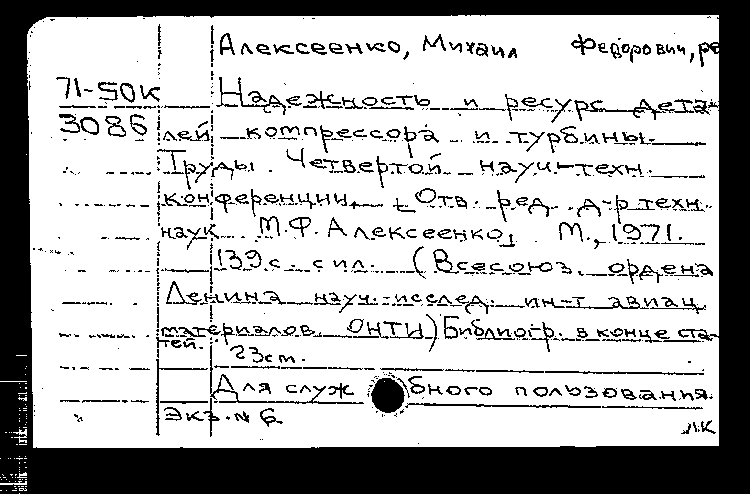 Алексеенко, Михаил Федорович, ре
71-50к Надежность и ресурс дета-
3086 лей компрессора и турбины.
Труды Четвертой науч.-техн.
конференции. [Отв. ред. д-р техн.
наук М.Ф. Алексеенко]. М., 1971.
139 с. с ил. (Всесоюз. ордена
Ленина науч.-исслед. ин-т авиац.
материалов. ОНТИ) Библиогр. в конце ста-
тей. 23 ст.
Для служебного пользования.
Экз. № 6
ЛК